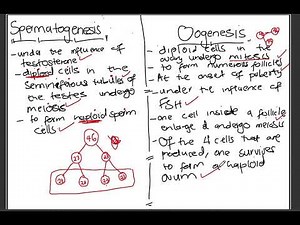 Spermatogenesis
- under the influence of
testosterone
- diploid cells in the
seminiferous tubules of
the testes undergo
meiosis
- to form haploid sperm
cells
46
23
23
23
23
23
23
Oogenesis
- diploid cells in the
ovary undergo mitosis
- to form numerous follicles
- At the onset of puberty
- under the influence of
FSH
- one cell inside a follicle
enlarge & undergo meiosis
- Of the 4 cells that are
produced, one survives
to form a haploid
ovum